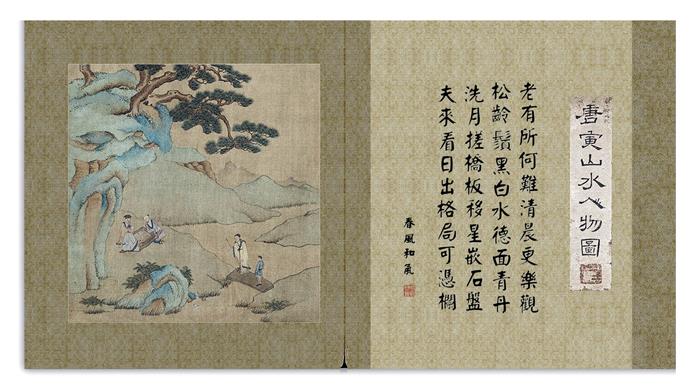 唐寅山水人物圖
老有所何難清晨更樂觀
松齡鬚黑白水德面青丹
洗月搓橋板移星嵌石盤
夫來看日出格局可憑欄
春風和氣